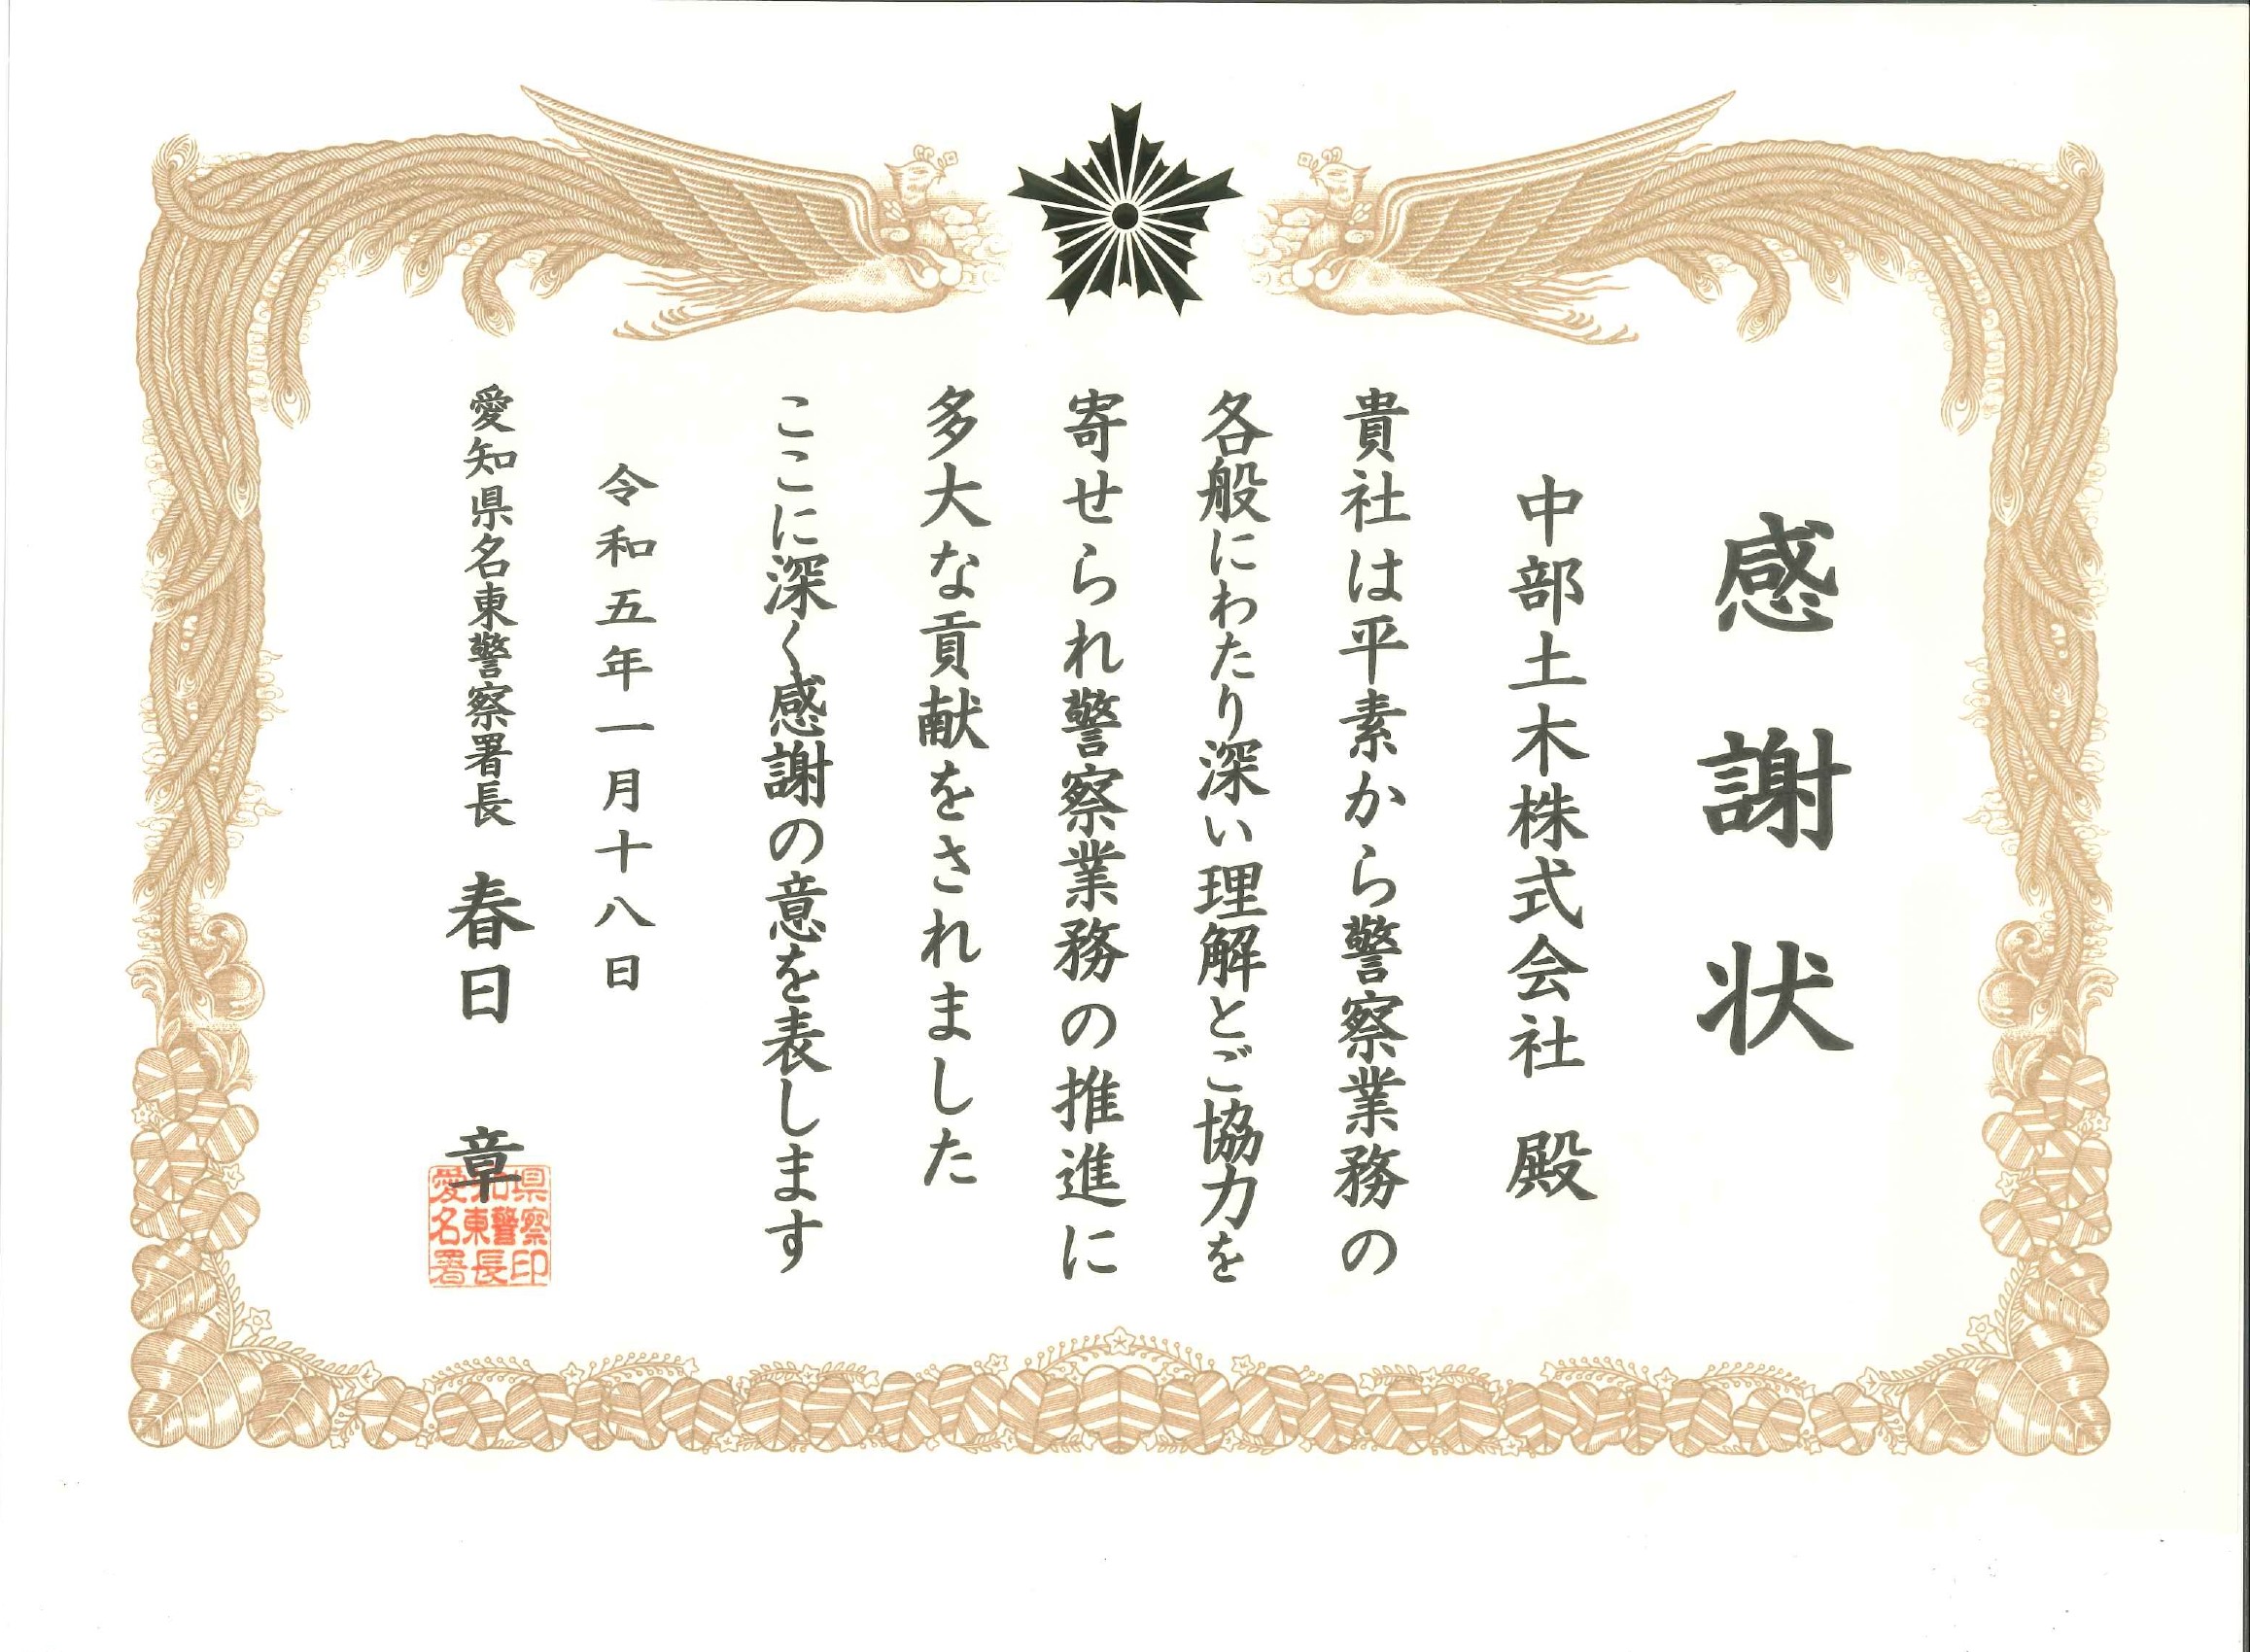 感謝状
中部土木株式会社 殿
貴社は平素から警察業務の
各般にわたり深い理解とご協力を
寄せられ警察業務の推進に
多大な貢献をされました
ここに深く感謝の意を表します
令和五年一月十八日
愛知県名東警察署長 春日 章
愛知県
名東警察
署長印